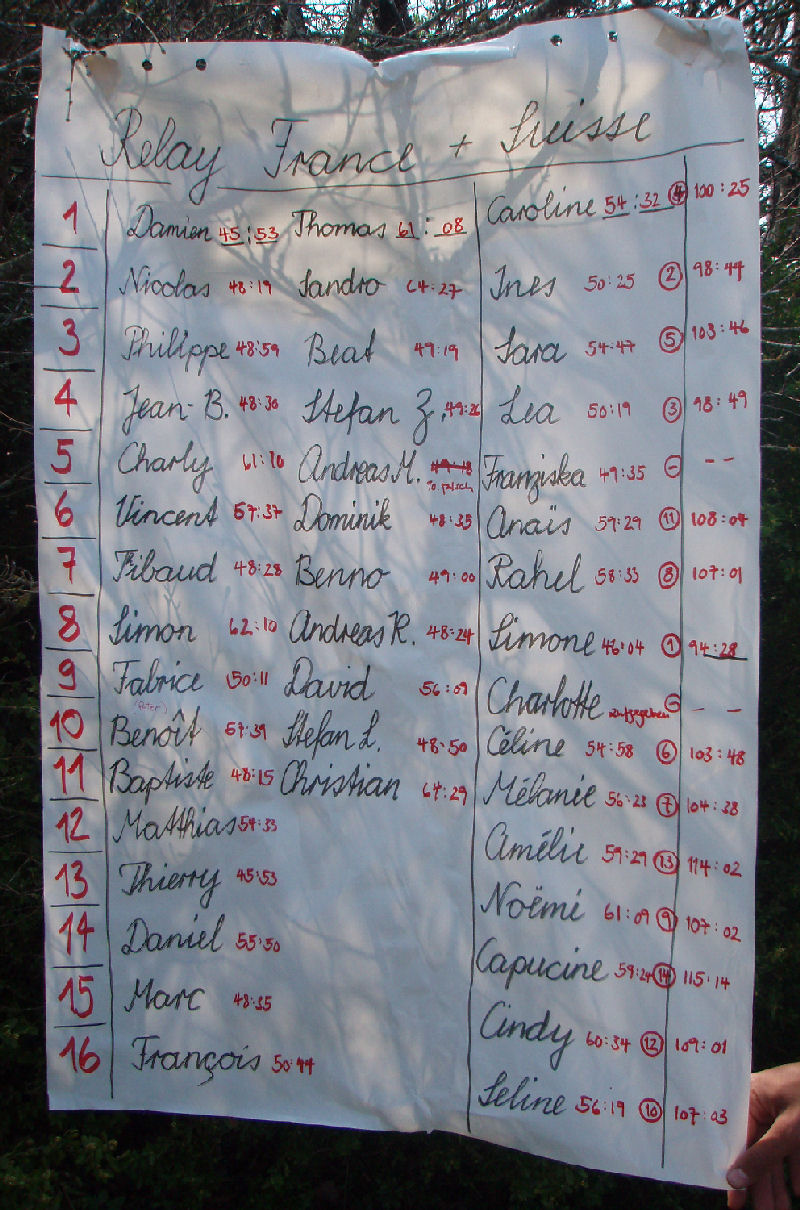 Relay France + Suisse
1 Damien 45:53 Thomas 61:08 Caroline 54:32 4 100:25
2 Nicolas 48:19 Sandro 64:27 Ines 50:25 2 98:44
3 Philippe 48:59 Beat 49:19 Sara 54:47 5 103:46
4 Jean-B. 48:30 Stefan Z. 49:26 Lea 50:19 3 98:49
5 Charly 61:10 Andreas M. Franziska 49:35 - - -
6 Vincent 57:37 Dominik 48:35 Anaïs 59:29 11 108:04
7 Tibaud 48:28 Benno 49:00 Rahel 58:33 8 107:01
8 Simon 62:10 Andreas R. 48:24 Simone 46:04 1 94:28
9 Fabrice 50:11 David 56:09 Charlotte aufgegeben - - -
10 Benoît 57:39 Stefan L. 48:50 Céline 54:58 6 103:48
11 Baptiste 48:15 Christian 64:29 Mélanie 56:23 7 104:38
12 Matthias 54:33 Amélie 59:29 13 114:02
13 Thierry 45:53 Noëmi 61:09 9 107:02
14 Daniel 55:50 Capucine 59:24 14 115:14
15 Marc 48:35 Cindy 60:34 12 109:01
16 François 50:44 Seline 56:19 10 107:03